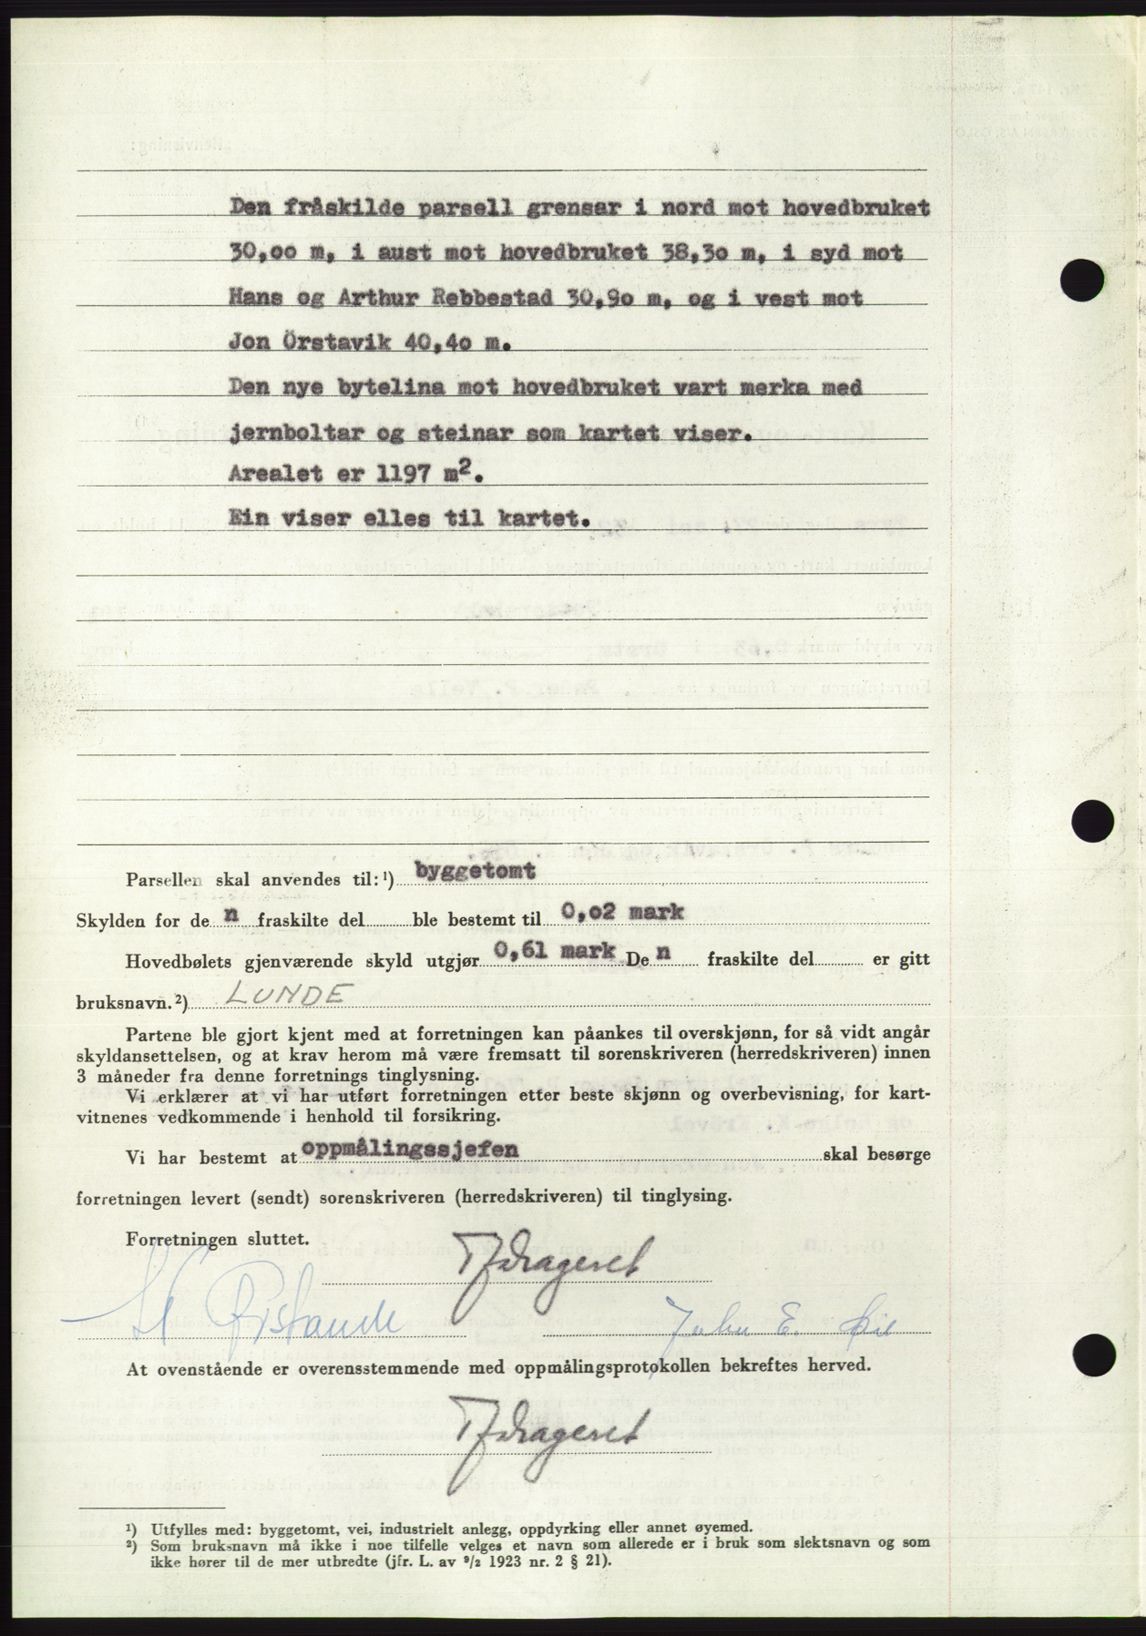 Den fråskilde parsell grensar i nord mot hovedbruket
30,00 m, i aust mot hovedbruket 38,30 m, i syd mot
Hans og Arthur Rebbestad 30,90 m, og i vest mot
Jon Örstavik 40,40 m.
Den nye bytelina mot hovedbruket vart merka med
jernboltar og steinar som kartet viser.
Arealet er 1197 m².
Ein viser elles til kartet.
Parsellen skal anvendes til: ¹) byggetomt
Skylden for de n fraskilte del ble bestemt til 0,02 mark
Hovedbølets gjenværende skyld utgjør 0,61 mark De n fraskilte del er gitt
bruksnavn. ²) LUNDE
Partene ble gjort kjent med at forretningen kan påankes til overskjønn, for så vidt angår
skyldansettelsen, og at krav herom må være fremsatt til sorenskriveren (herredskriveren) innen
3 måneder fra denne forretnings tinglysning.
Vi erklærer at vi har utført forretningen etter beste skjønn og overbevisning, for kart-
vitnenes vedkommende i henhold til forsikring.
Vi har bestemt at oppmålingssjefen skal besørge
forretningen levert (sendt) sorenskriveren (herredskriveren) til tinglysing.
Forretningen sluttet.
John E.
At ovenstående er overensstemmende med oppmålingsprotokollen bekreftes herved.
¹) Utfylles med: byggetomt, vei, industrielt anlegg, oppdyrking eller annet øyemed.
²) Som bruksnavn må ikke i noe tilfelle velges et navn som allerede er i bruk som slektsnavn og som
ikke hører til de mer utbredte (jfr. L. av ⁹/₂ 1923 nr. 2 § 21).